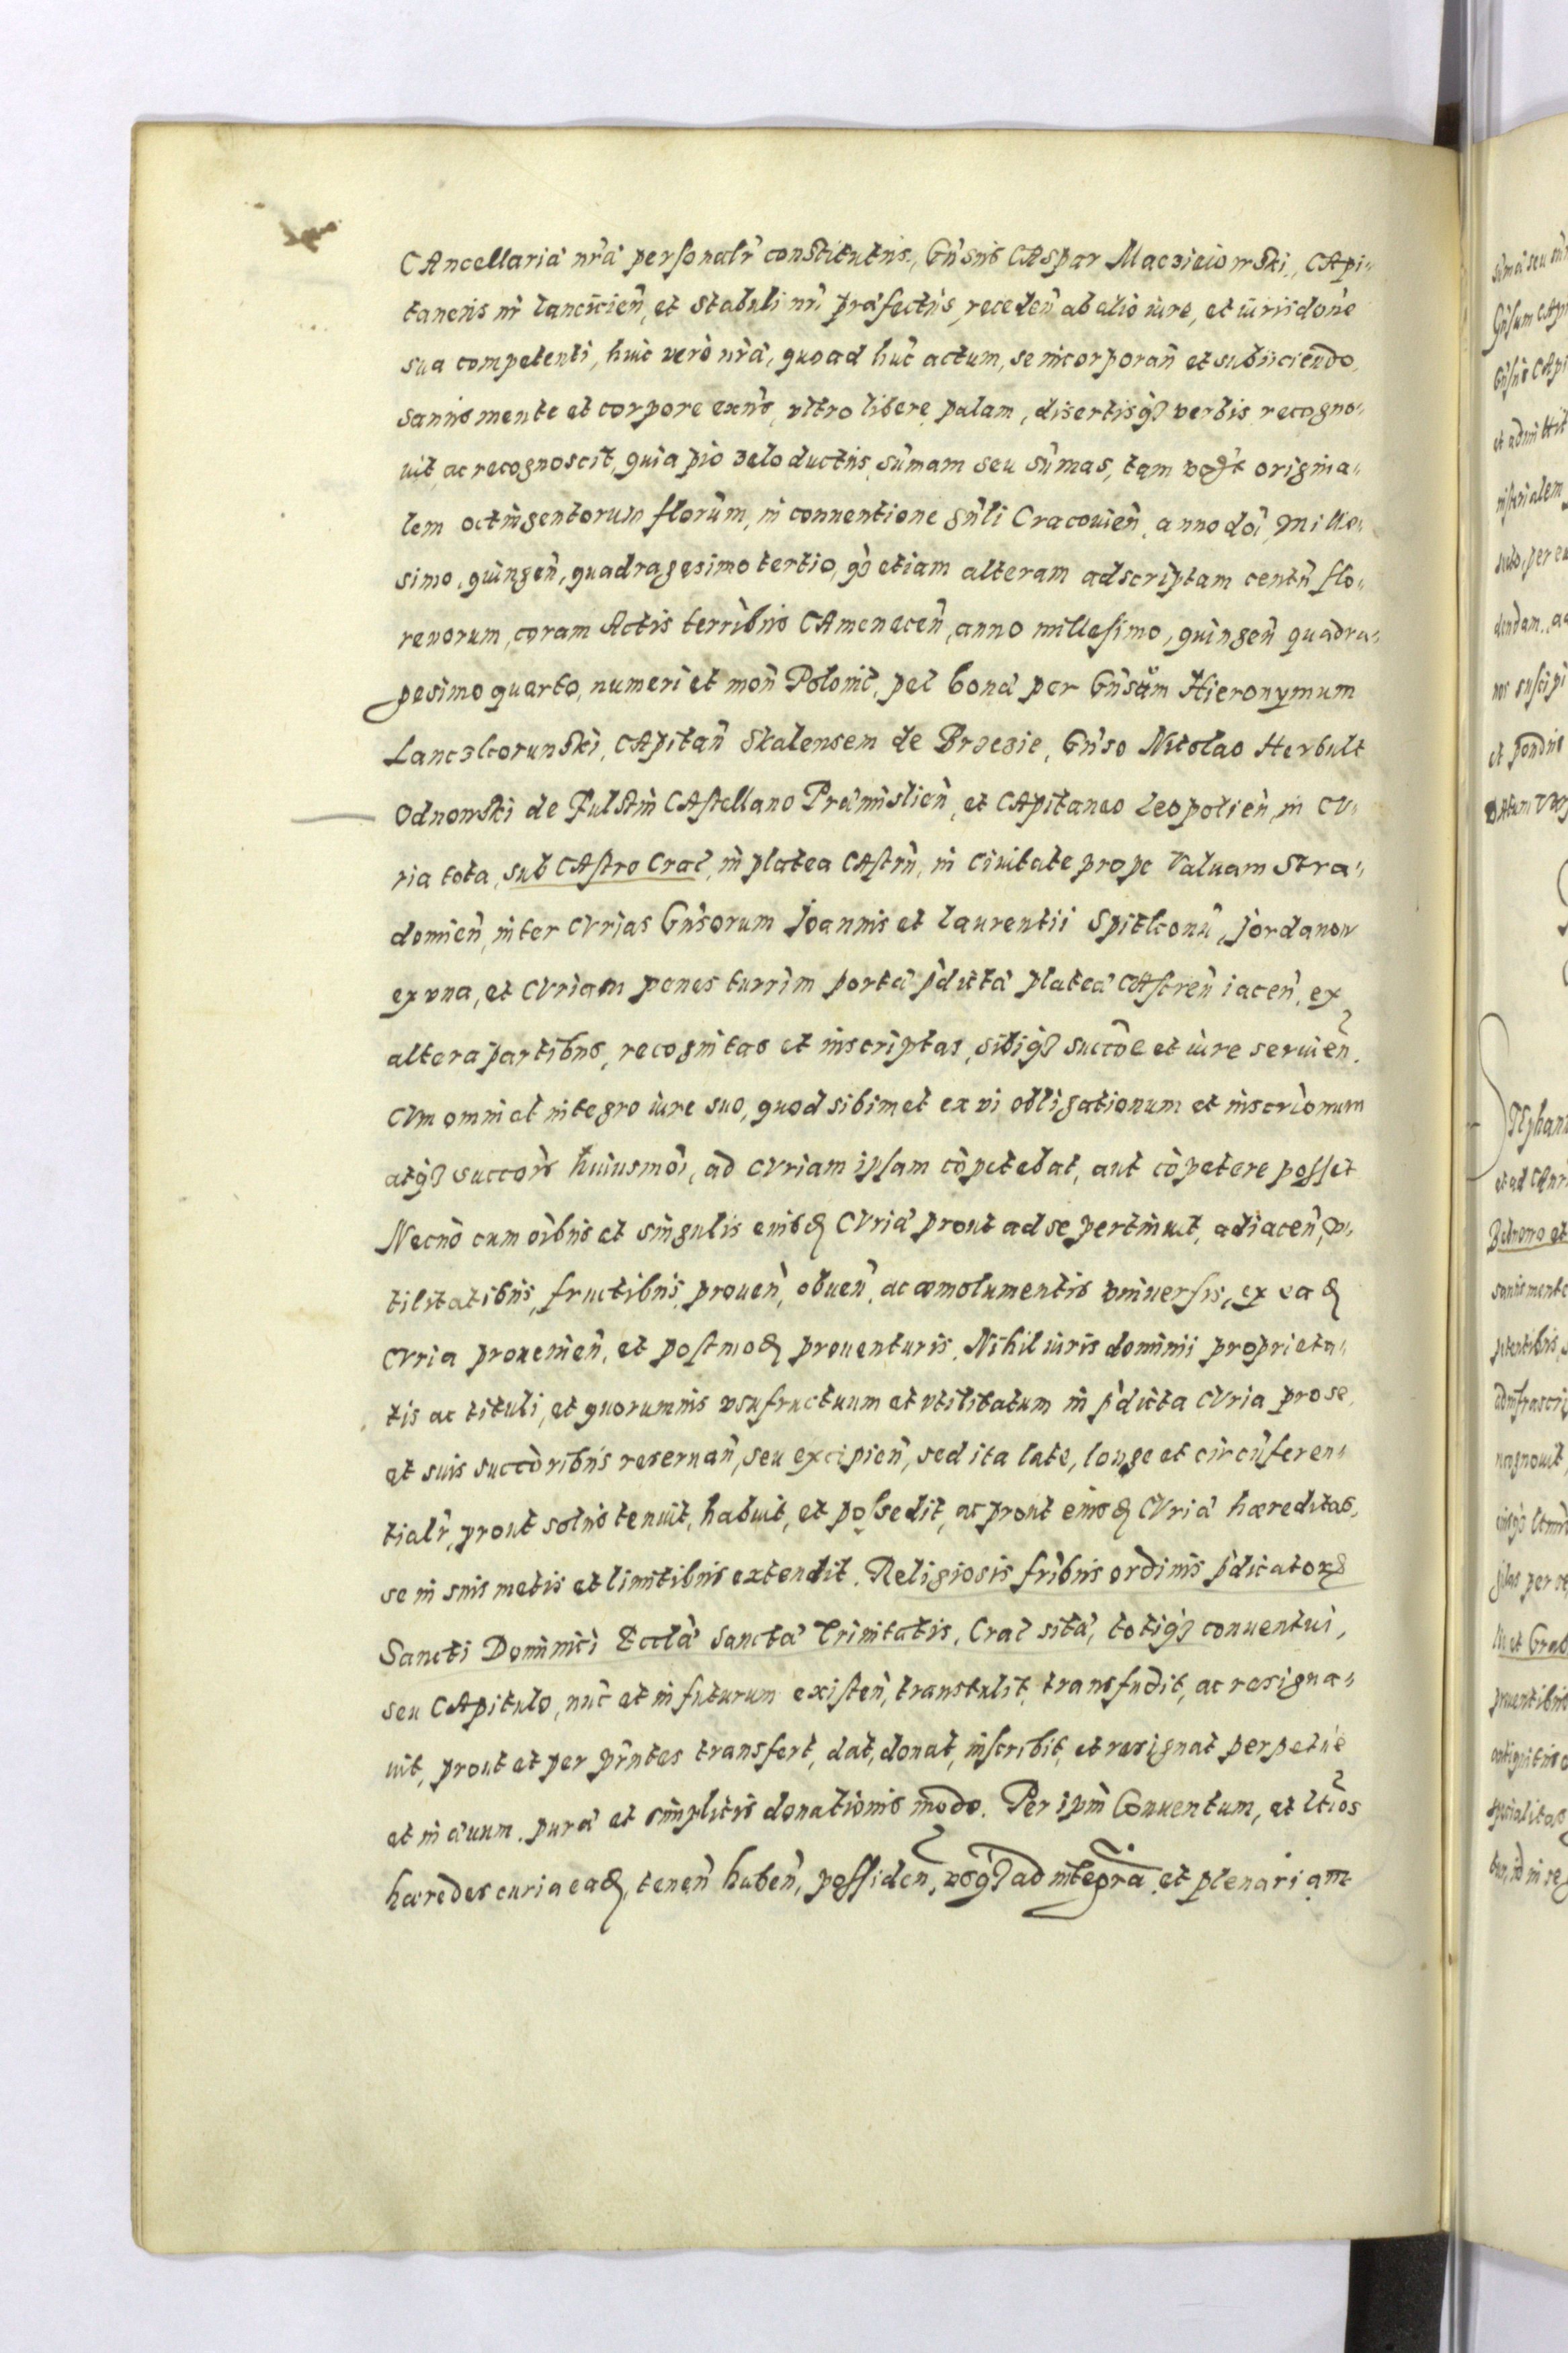 CAncellaria nr̃a personalr̃ constitutus, Gn̄sus CAspar Maczieiowski, CApi„
taneus nr̃ lancicien̄, et stabuli nr̃i præfectus, receden̄ ab alio iure, et iurisdone
sua competenti, huic vero nr̃a, quoad huc actum, se incorporan̄ et subijciendo,
sanus mente et corpore exn̄s, ultro libere palam, disertisq₃ verbis recogno„
uit, ac recognoscit, quia pio zelo ductus, sūmam seu sūmas, tam origina„
lem octingentorum florūm, in conuentione gn̄li Cracouien̄, anno doī Mille„
simo, quingen̄, quadragesimo tertio, q̄ etiam alteram adscriptam centū flo„
renorum, coram Actis terrībus CAmenecen̄, anno millesimo, quingen̄ quadra„
gesimo quarto, numeri et mon̄ Polonic̄, pel bona per Gn̄sum Hieronymum
Lanczkorunski, CApitan̄ Skalensem de Brzezie, Gn̄so Nicolao Herbult
Odnowski de Fulstin CAstellano Præmislien̄, et CApitaneo Leopolien̄, in CU„
ria tota, sub CAstro Crac̄, in platea CAstrn̄, in Ciuitate prope Valuam Stra„
domien̄, inter CUrias Gn̄sorum Joannis et Laurentii Spitkonū, Jordanow
ex una, et CUriam penes turrim porta p̄dicta platea CAstren̄ iacen̄, ex
altera partibus, recognitas et inscriptas, sibiq₃ succōe et iure seruien̄.
CUm omni et integro iure suo, quod sibimet ex vi obligationum et inscriōnum
atq₃ succōis huiusmōi, ad CUriam ipsam cōpetebat, aut cōpetere posset
Necnō cum oībus et singulis eiusd CUriæ prout ad se pertinuit, adiacen̄, u„
tilitatibus, fructibus, prouen̄, obuen̄, ac æmolumentis uniuersis, ex ead
CUria prouenien̄, et postmod prouenturis. Nihil iuris dominii proprieta„
tis ac tituli, et quorumuis usufructuum et utilitatum in p̄dicta CUria pro se,
et suis succōribus reseruan̄, seu excipien̄, sed ita late, longe et circūferen„
tialr̃, prout solus tenuit, habuit, et possedit, ac prout eiusd CUriæ hæreditas,
se in suis metis et limitibus extendit. Religiosis fr̄ibus ordinis p̄dicatorꝝ
Sancti Dominici Eccl̄a Sanctæ Trinitatis, Crac̄ sitæ, totiq₃ conuentui,
seu CApitulo, nūc et in futurum existen̄, transtulit, transfudit, ac resigna„
uit, prout et per pr̄ntes transfert, dat, donat, inscribit, et resignat perpetuè
et in æuum. puræ et simplicis donationis modo. Per ipm̄ Conuentum, et l̄tios
hæredes curia ead, tenen̄ haben̄, possiden̄, usq₃ ad integrā et plenariam